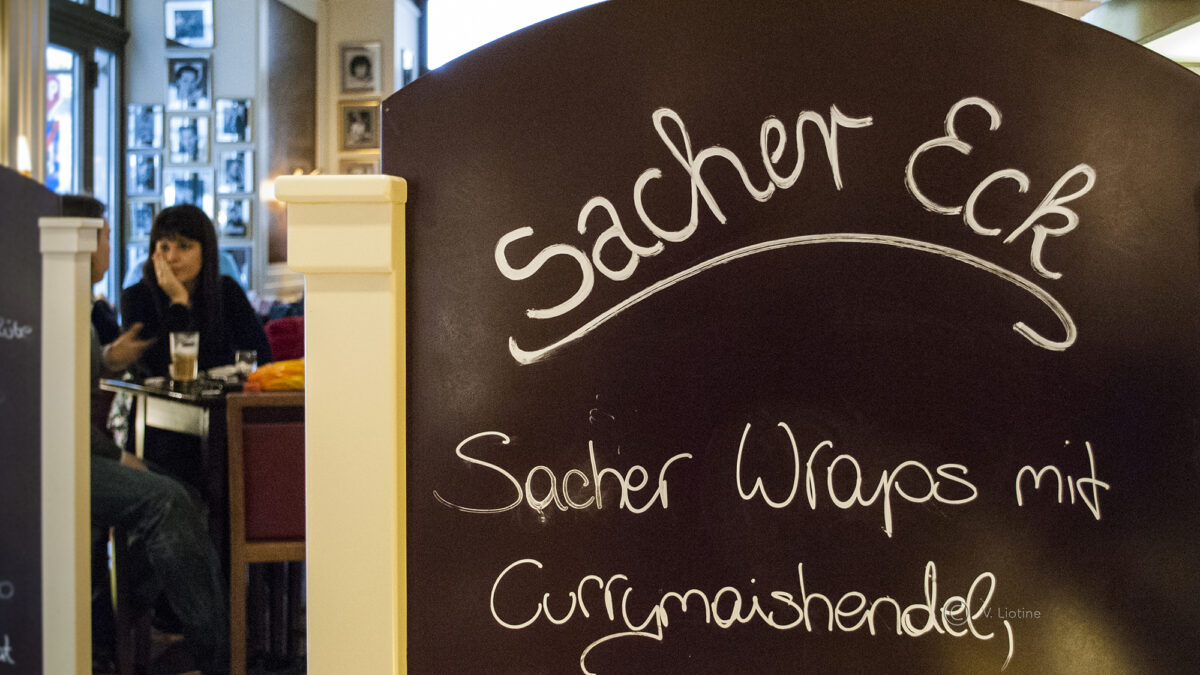 Sacher Eck
Sacher Wraps mit
Currymaishendel,
© V. Liotine